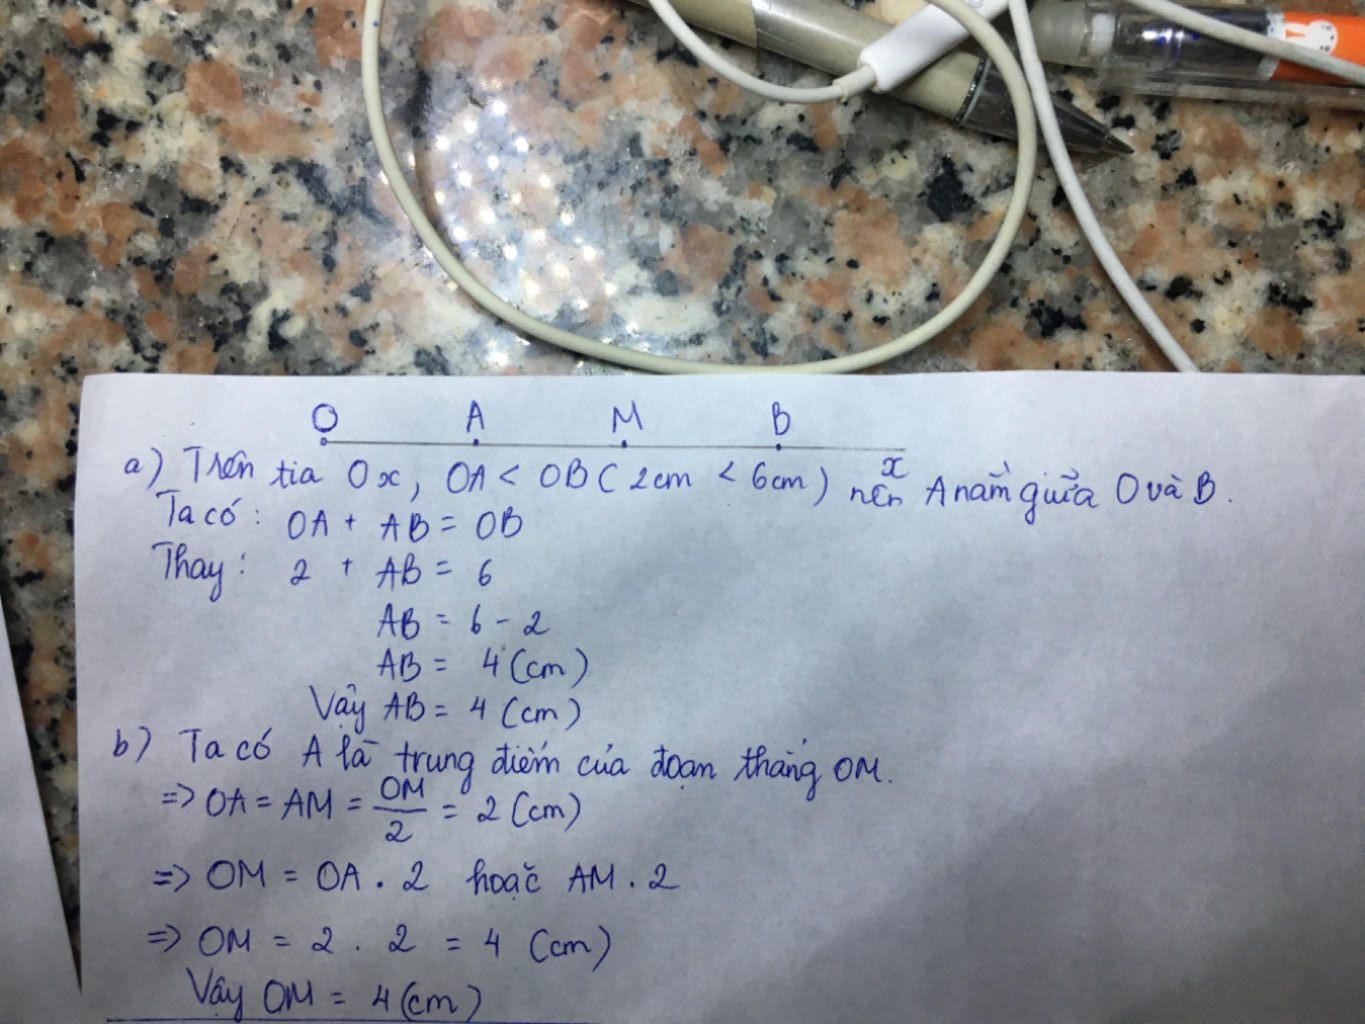 O A M B
x
a) Trên tia Ox, OA < OB ( 2cm < 6cm ) nên A nằm giữa O và B.
Ta có : OA + AB = OB
Thay : 2 + AB = 6
AB = 6 - 2
AB = 4 (cm)
Vậy AB = 4 (cm)
b) Ta có A là trung điểm của đoạn thẳng OM.
=> OA = AM = OM/2 = 2 (cm)
=> OM = OA . 2 hoặc AM . 2
=> OM = 2 . 2 = 4 (cm)
Vậy OM = 4 (cm)